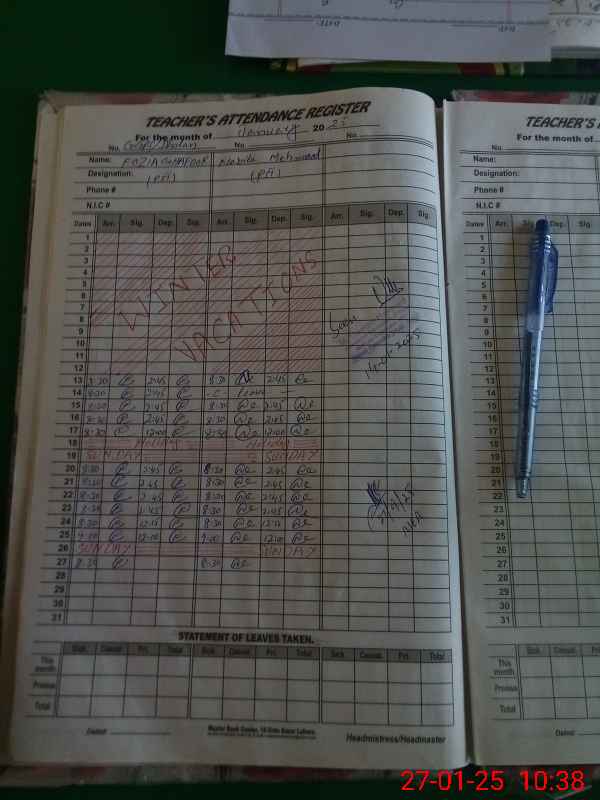 TEACHER'S ATTENDANCE REGISTER
For the month of January 2025
No. No. No.
Name: FOZIA GHAFOOR Mehmood
Designation: (PA) (PA)
Phone #
N.I.C #
Dates Arr. Sig. Dep. Sig. Arr. Sig. Dep. Sig. Arr. Sig. Dep. Sig.
1
2
3
4
5
6
7
8
9
10
11
12
WINTER
VACATIONS
14-01-2025
13 8:30 2:45 8:30 2:45
14 8:30 2:45 -C- Leave -
15 8:30 2:45 8:30 2:45
16 8:30 2:45 8:30 2:45
17 8:30 12:00 8:30 12:00
18 Holiday
19 SUNDAY SUNDAY
20 8:30 2:45 8:30 2:45
21 8:30 2:45 8:30 2:45
22 8:30 2:45 8:30 2:45
23 8:30 2:45 8:30 2:45
24 8:30 12:15 8:30 12:15
25 9:00 12:00 9:00 12:00
26 SUNDAY SUNDAY
27 8:30 8:30
28
29
30
31
STATEMENT OF LEAVES TAKEN.
Sick. Casual. Pri. Total Sick. Casual. Pri. Total Sick Casual. Pri. Total
This month
Previous
Total
Dated
Master Book Center, 16-Urdu Bazar Lahore.
Headmistress/Headmaster
TEACHER'S
For the month of
No.
Name:
Designation:
Phone #
N.I.C #
Dates Arr. Sig. Dep. Sig.
1
2
3
4
5
6
7
8
9
10
11
12
13
14
15
16
17
18
19
20
21
22
23
24
25
26
27
28
29
30
31
Sick. Casual. Pri. Total
This month
Previous
Total
Dated
27-01-25 10:38